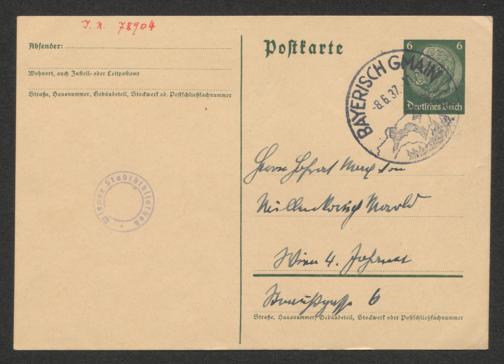 I. N. 78904
Absender:
Wohnort, auch Zustell- oder Leitpostamt
Straße, Hausnummer, Gebäudeteil, Stockwerk od. Postschließfachnummer
Wiener Stadtbibliothek
Postkarte
6 6
Deutsches Reich
BAYERISCH GMAIN
-8.6.37.
Herrn Hofrat Max von
Millenkovich Morold
Wien 4.
Straußgasse 6
Straße, Hausnummer, Gebäudeteil, Stockwerk oder Postschließfachnummer